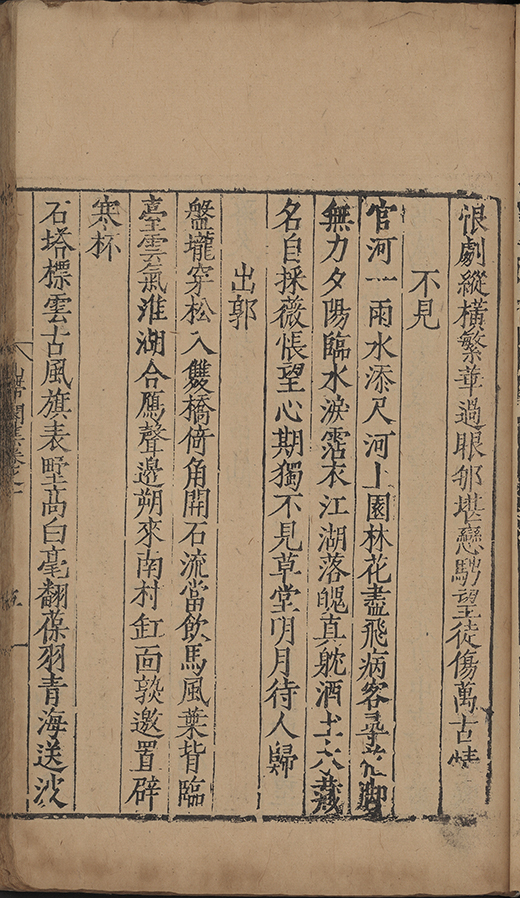 恨劇縱橫繁華過眼那堪戀騁望徒傷萬古情
不見
官河一雨水添尺河上園林花盡飛病客尋花脚
無力夕陽臨水淚霑衣江湖落魄真躭酒藏
名自採薇悵望心期獨不見草堂明月待人歸
出郭
盤壠穿松入雙橋倚角開石流當飲馬風葉背臨
臺雲氣淮湖合鴈聲邊朔來南村缸面熟邀置辟
寒杯
石塔標雲古風旗表野高白毫翻葆羽青海送沈
山帶閣集卷之
五